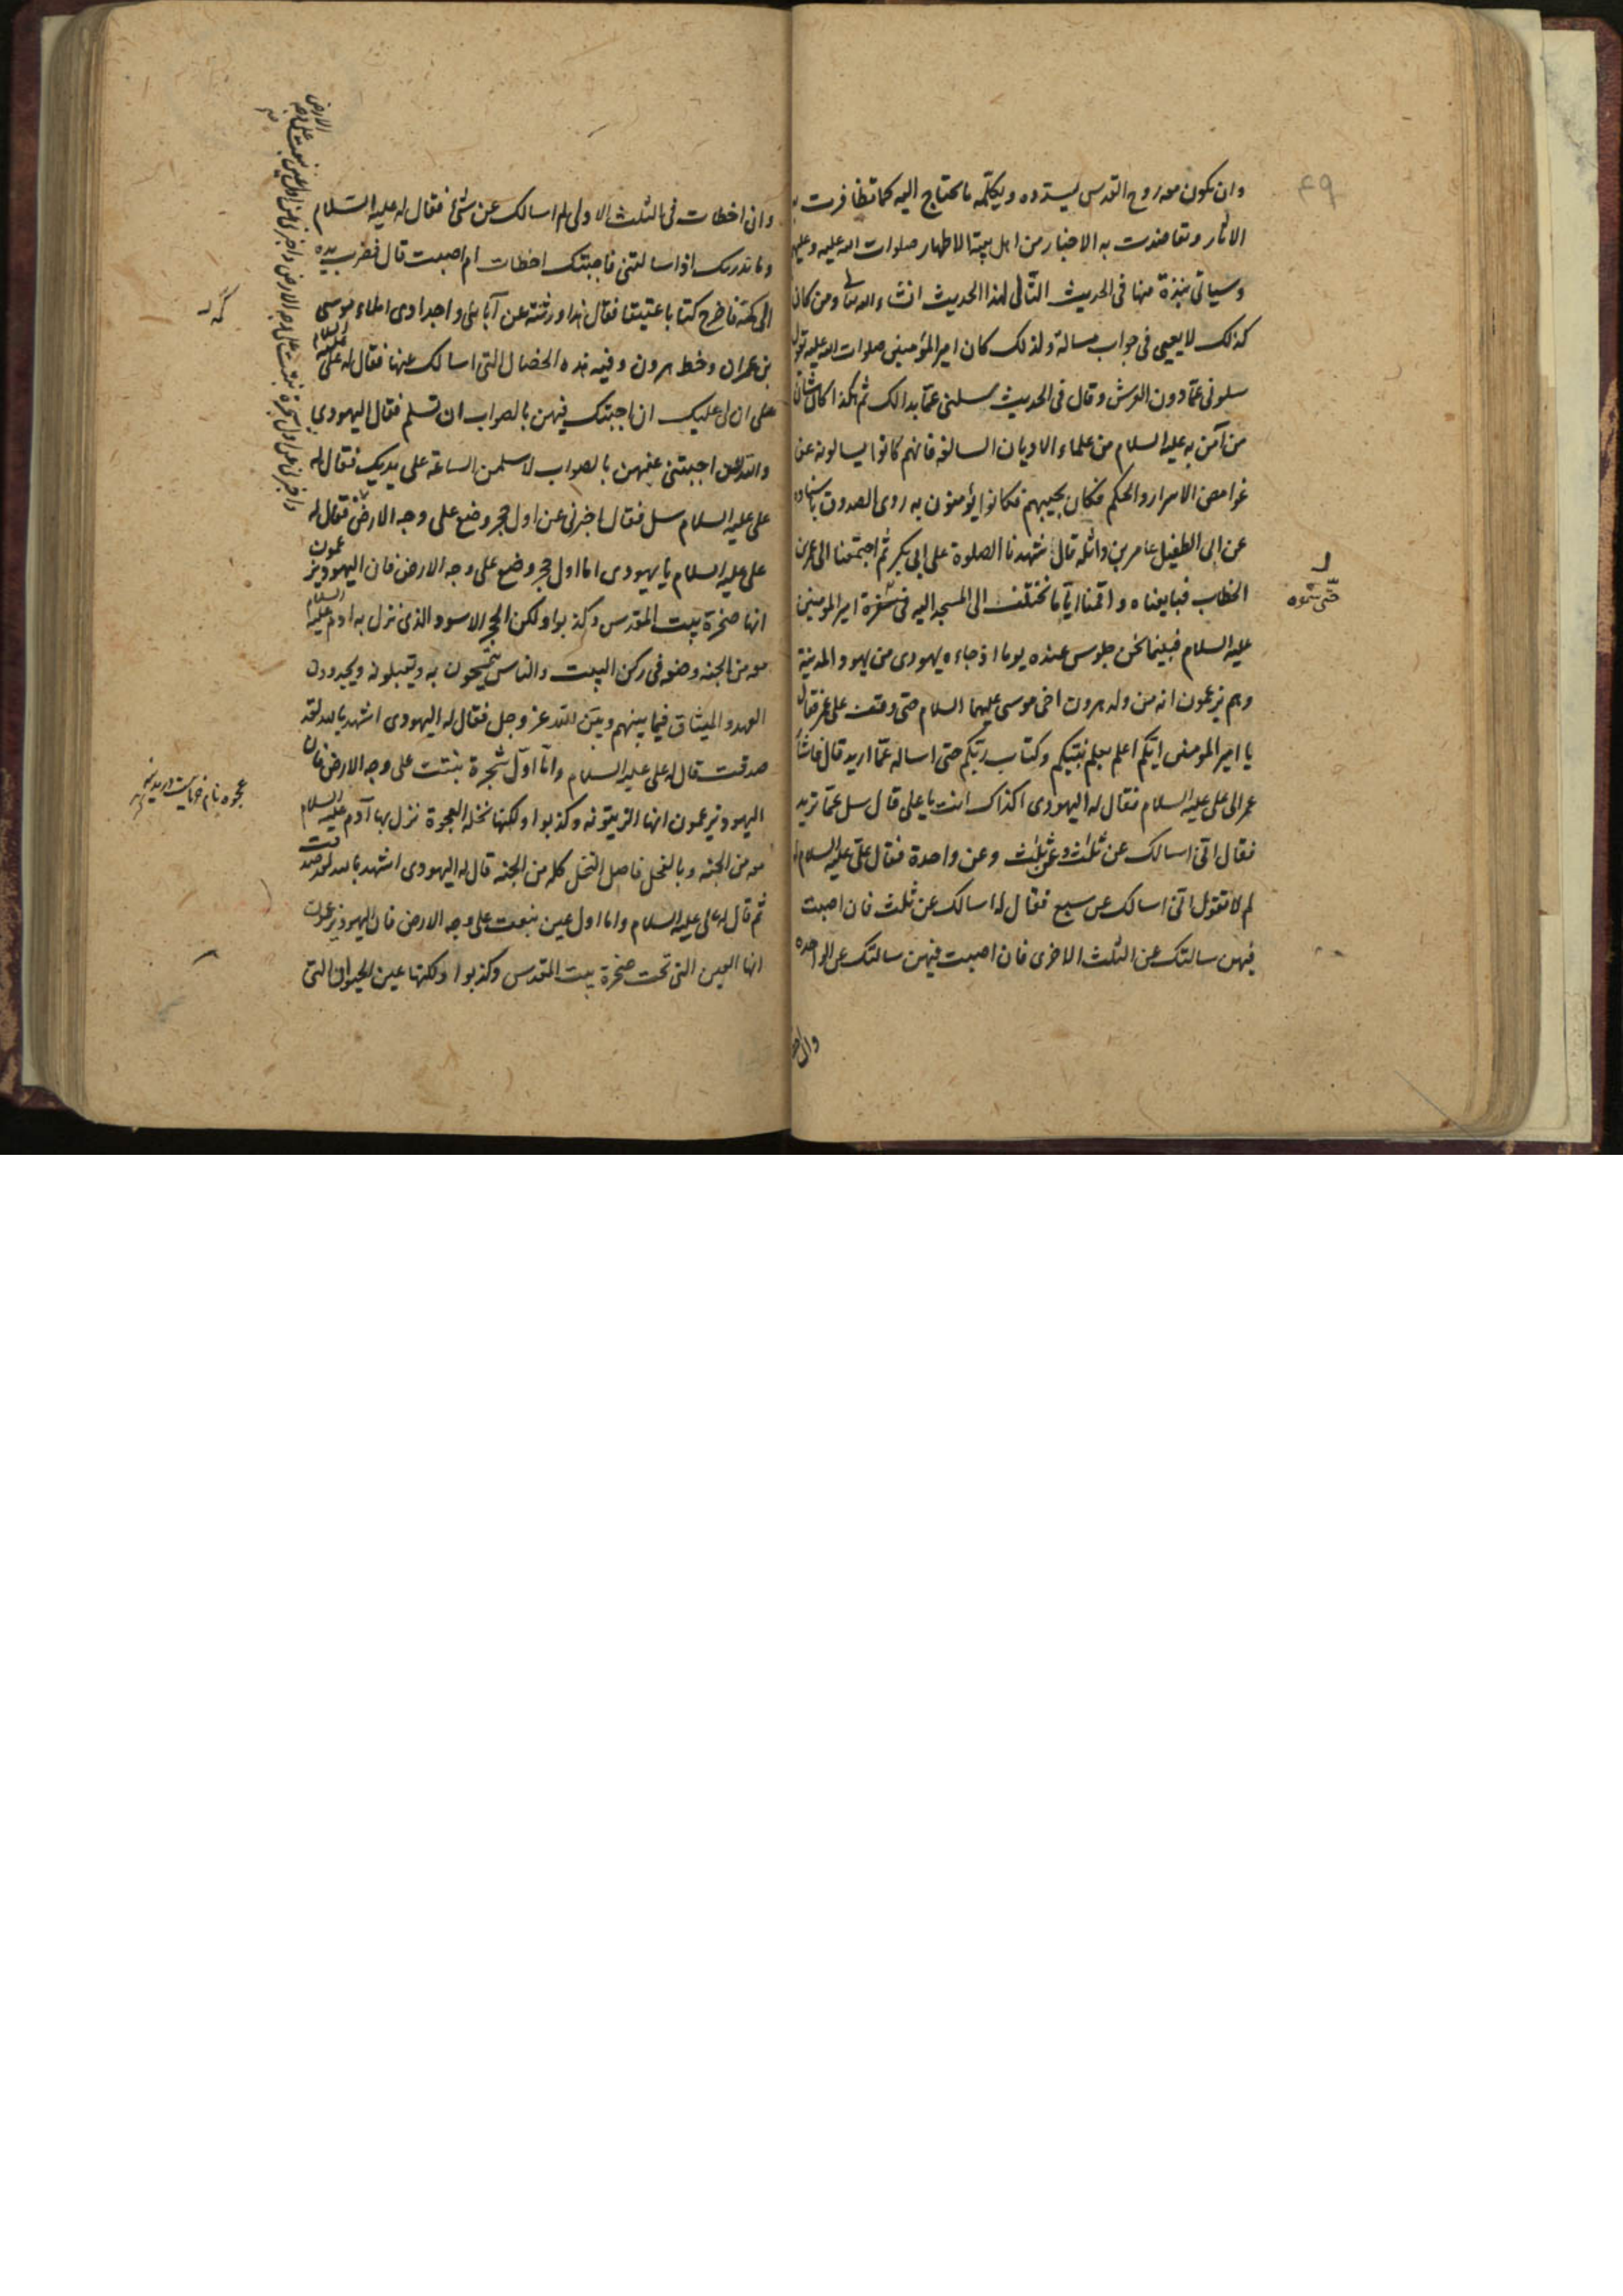 ۴۹
وان يكون معه روح القدس يسدده ويكلمه ما يحتاج اليه كما تظافرت به
الاثار وتعاضدت به الاخبار من اهل بيته الاطهار صلوات الله عليه وعليهم
وسياتى نبذة منها فى الحديث التالى لهذا الحديث انشاء الله تعالى ومن كان
كذلك لا يعيى فى جواب مسالة ولذلك كان اميرالمؤمنين صلوات الله عليه يقول
سلونى عمّا دون العرش وقال فى الحديث سلنى عمّا بدا لك ثم هكذا كان شان
من آمن به عليه السلام من علماء الاديان السالفه فانهم كانوا يسالونه عن
غوامض الاسرار والحكم فكان يجيبهم فكانوا يؤمنون به روى الصدوق باسناده
عن ابى الطفيل عامر بن واثله قال شهدنا الصلوة على ابى بكر ثم اجتمعنا الى عمر بن
الخطاب فبايعناه واقمنا ايّاما نختلف الى المسجد اليه
حتى سمّوه
اميرالمومنين
عليه السلام فبينما نحن جلوس عنده يوما اذ جاءه يهودى من يهود المدينة
وهم يزعمون انه من ولد هرون اخى موسى عليهما السلام حتى وقف على عمر فقال
يا اميرالمومنين ايّكم اعلم بعلم نبيّكم وكتاب ربّكم حتى اساله عمّا اريد قال فاشار
عمر الى على عليه السلام فقال له اليهودى اكذاك انت يا على قال سل عمّا تريد
فقال انّى اسالك عن ثلاث وعن ثلاث وعن واحدة فقال علىّ عليه السلام
لم لا تقول انّى اسالك عن سبع فقال له اسالك عن ثلث فان اصبت
فيهن سالتك عن الثلث الاخرى فان اصبت فيهن سالتك عن الواحده
وان اخطات فى الثلث الاولى لم اسالك عن شئ فقال له عليه السلام
وما يدريك اذا سالتنى فاجبتك اخطات ام اصبت قال فضرب بيده
الى كمّه فاخرج كتابا عتيقا فقال هذا ورثته عن آبائى واجدادى املاء موسى
بن عمران وخط هرون وفيه هذه الخصال التى اسالك عنها فقال له على عليه السلام
على ان لى عليك ان اجبتك فيهن بالصواب ان تسلم فقال اليهودى
والله لئن اجبتنى عنهن بالصواب لاسلمن الساعة على يديك فقال له
على عليه السلام سل فقال اخبرنى عن اول حجر وضع على وجه الارض فقال له
واخبرنى عن اول شجرة نبتت على وجه الارض واخبرنى عن اول عين نبعت على وجه الارض
على عليه السلام يا يهودى اما اول حجر وضع على وجه الارض فان اليهود يزعمون
انها صخرة بيت المقدس وكذبوا ولكن الحجر الاسود الذى نزل به ادم عليه السلام
معه من الجنه وضعه فى ركن البيت والناس يتمسّحون به ويقبلونه ويجددون
العهد والميثاق فيما بينهم وبين الله عز وجل فقال له اليهودى اشهد بالله لقد
صدقت قال له على عليه السلام وامّا اول شجرة نبتت على وجه الارض فان
اليهود يزعمون انها الزيتونه وكذبوا ولكنها نخلة العجوة نزل بها آدم عليه السلام
معه من الجنه وبالفحل فاصل النخل كله من الجنه قال له اليهودى اشهد بالله لقد صدقت
ثم قال له على عليه السلام واما اول عين نبعت على وجه الارض فان اليهود يزعمون
انها العين التى تحت صخرة بيت المقدس وكذبوا ولكنها عين الحيوان التى